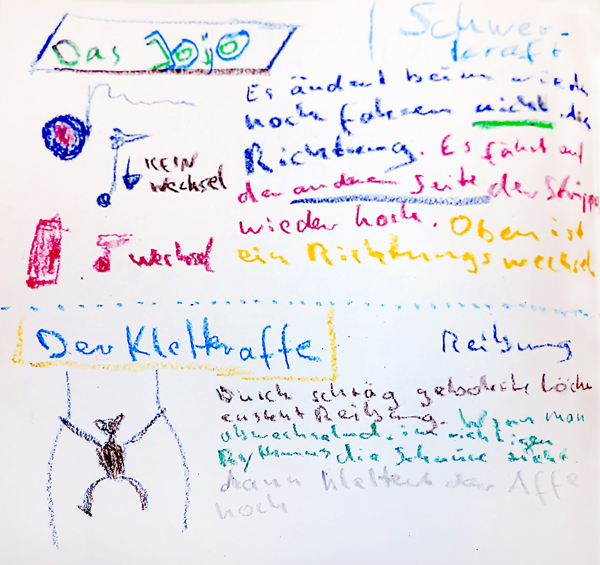 Das Jojo
Schwer-
kraft
Es ändert beim wieder
hoch fahren nicht die
Richtung. Es fährt auf
der anderen Seite der Strippe
wieder hoch. Oben ist
ein Richtungswechsel
KEIN
wechsel
wechsel
Der Kletteraffe
Reibung
Durch schräg gebohrte Löcher
entsteht Reibung. Wenn man
abwechselnd im richtigen
Rythmus die Schnüre zieht
dann klettert der Affe
hoch